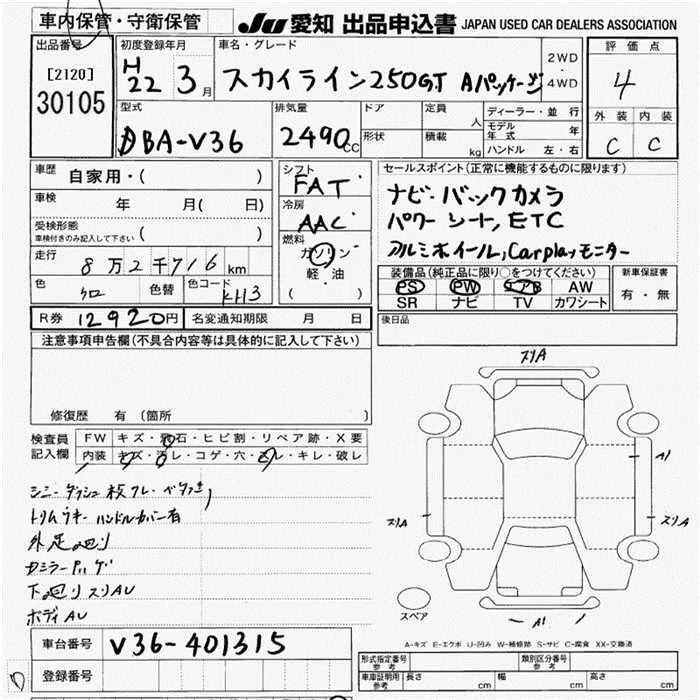 車内保管・守衛保管
JU 愛知 出品申込書 JAPAN USED CAR DEALERS ASSOCIATION
出品番号
[2120]
30105
初度登録年月
H22 3月
車名・グレード
スカイライン250GT Aパッケージ
2WD・4WD
評価点
4
外装 内装
C C
型式
DBA-V36
排気量
2490cc
ドア
形状
定員 人
積載 kg
ディーラー・並行
モデル年式 年
ハンドル 左・右
車歴 自家用・( )
車検 年 月( 日)
受検形態
車検付きのみ記入して下さい ( )
走行 8万2千716km
色 クロ 色替 色コード KH3
シフト
FAT
冷房
AAC
燃料
ガソリン
軽・油
( )
セールスポイント(正常に機能するものに限ります)
ナビ・バックカメラ
パワーシート, ETC
アルミホイール, Carplayモニター
装備品(純正品に限り○をつけてください)
PS PW エアB AW
SR ナビ TV カワシート
新車保証書
有・無
R券 12920円 名変通知期限 月 日
後日品
注意事項申告欄(不具合内容等は具体的に記入して下さい)
修復歴 有(箇所 )
検査員記入欄
FW キズ・飛石・ヒビ割・リペア跡・X要
内装 キズ・汚レ・コゲ・穴・スレ・キレ・破レ
トリムウキー ハンドルカバー有
外足廻り
下廻リスリAU
ボディAU
スリA
A1
スリA
スリA
A1
スペア
A-キズ E-エクボ U-凹み W-補修跡 S-サビ C-腐食 XX-交換済
車台番号 V36-401315
登録番号
型式指定番号 参考
類別区分番号 参考
車庫証明用 参考
長さ cm
幅 cm
高さ cm